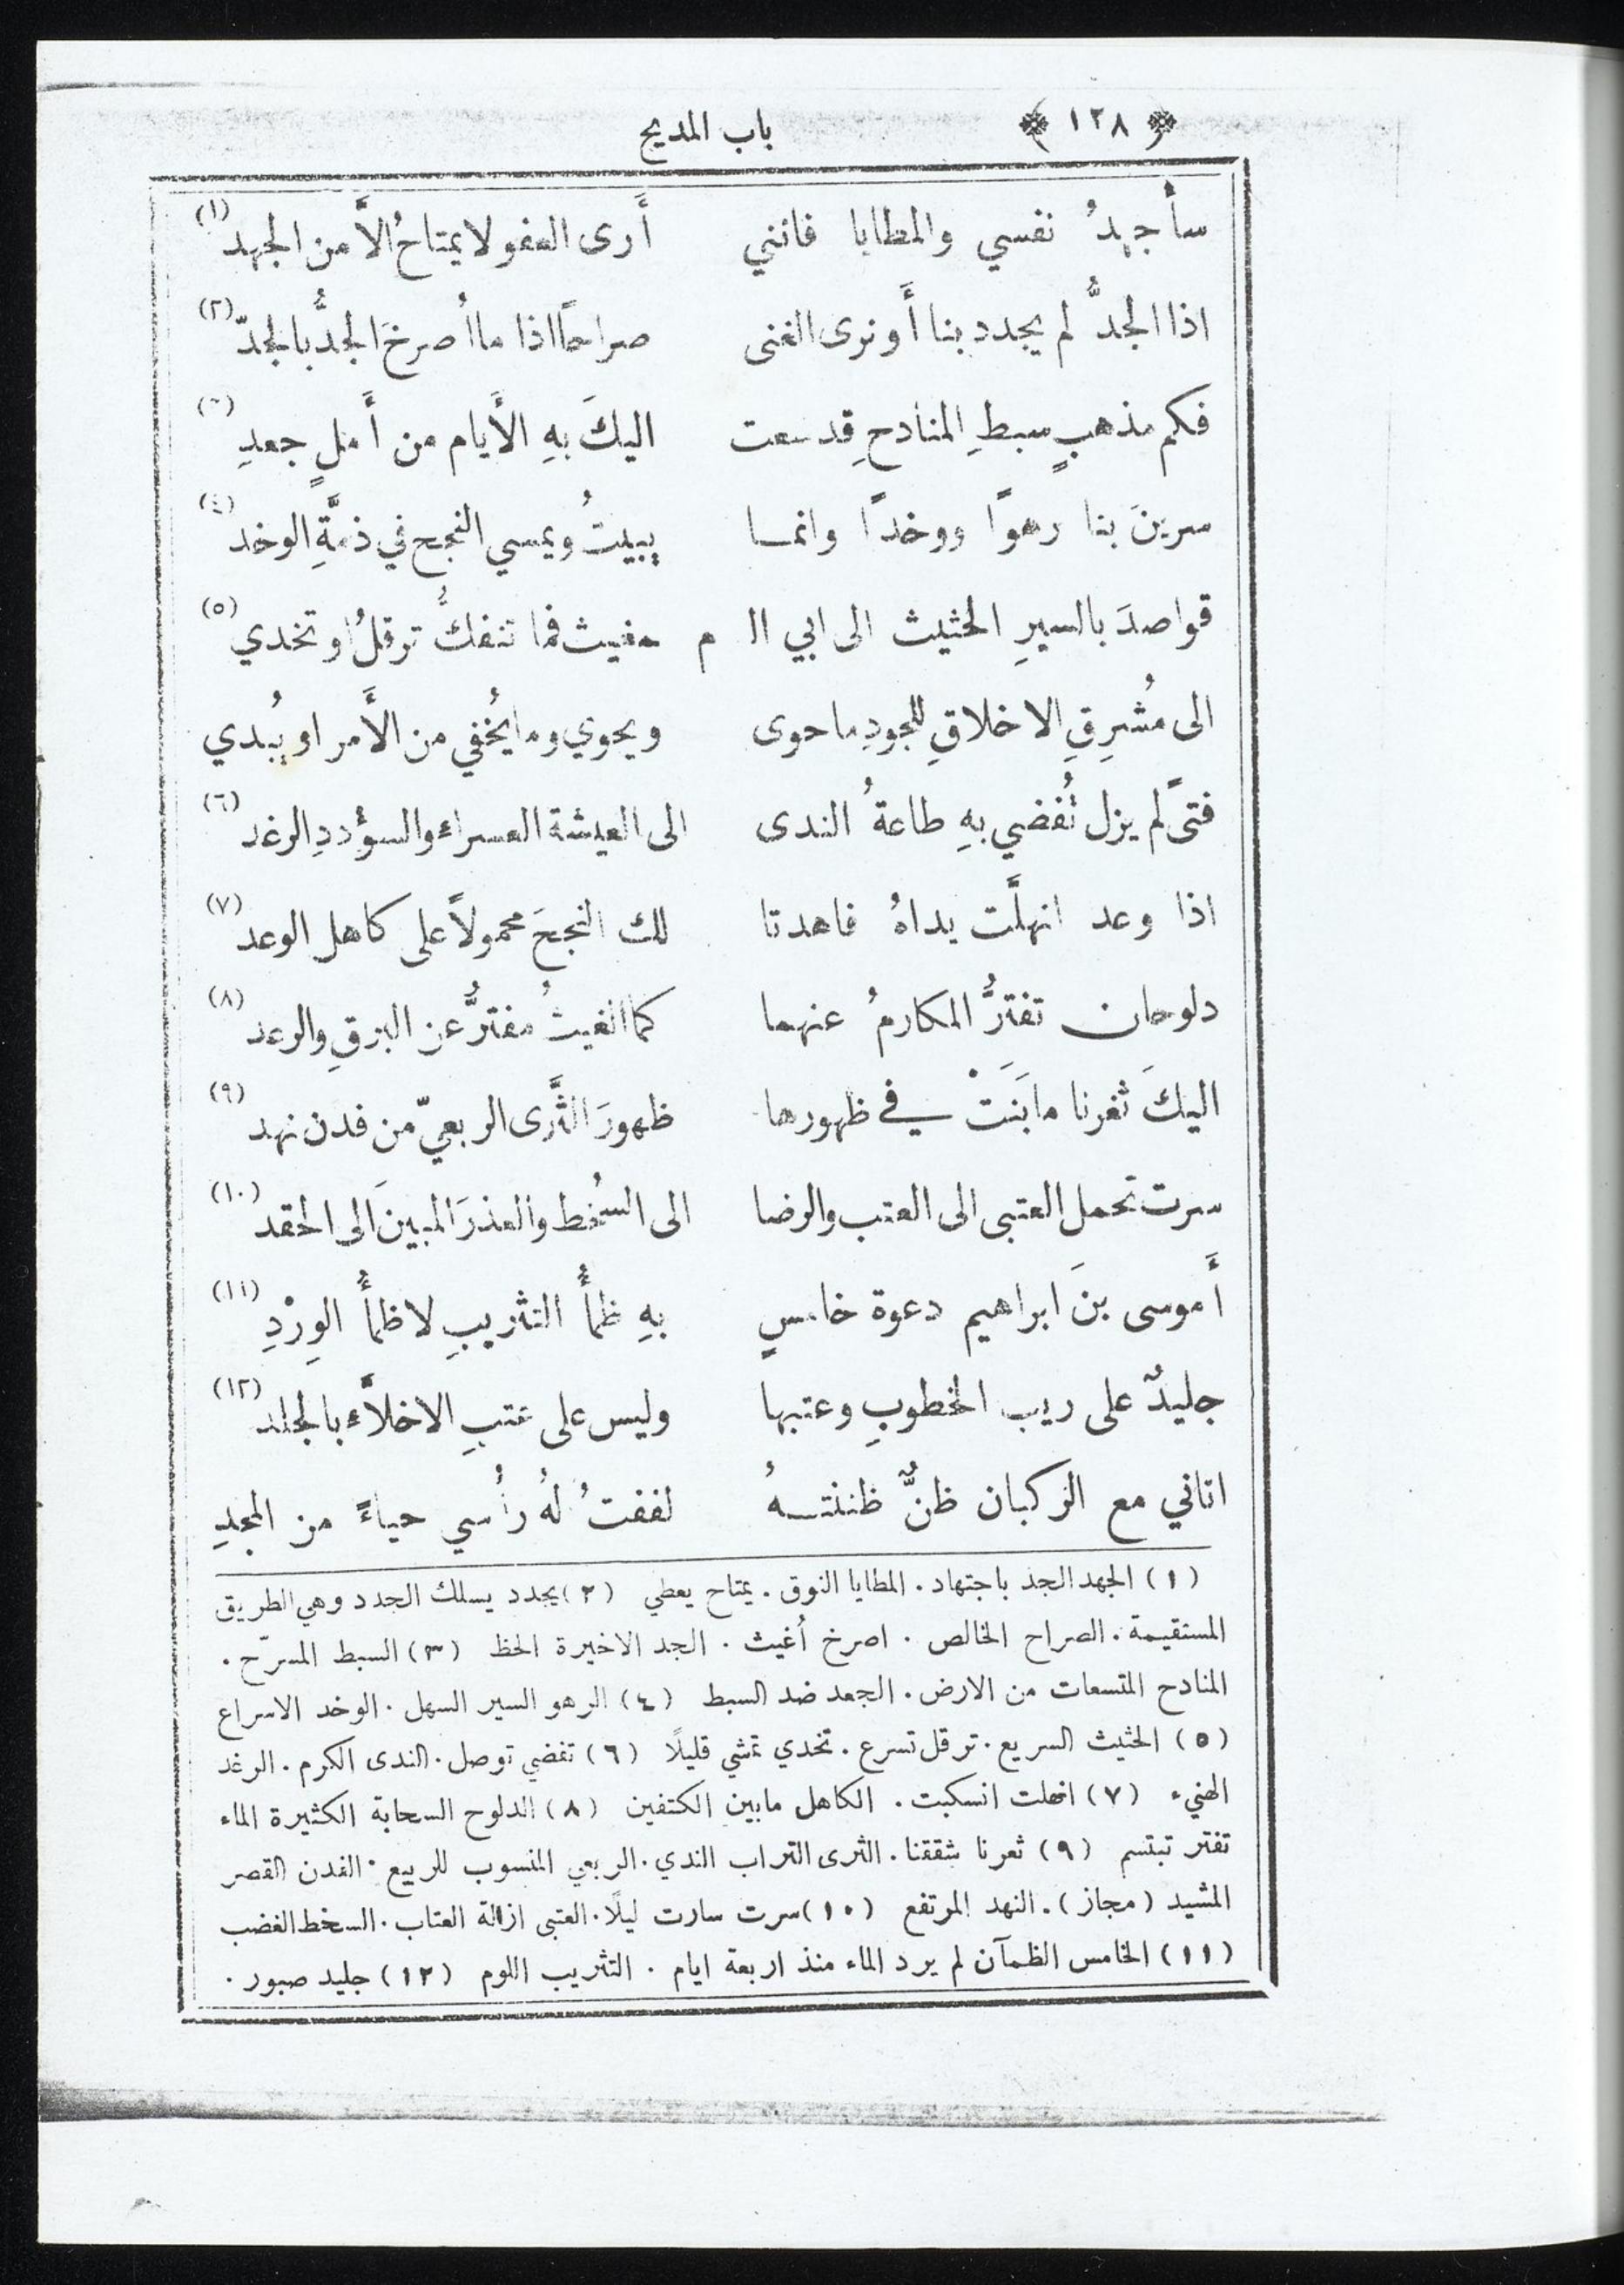 ﴿ ١٢٨ ﴾ باب المديح
سأجهدُ نفسي والمطايا فانني أَرى العفو لا يمتاحُ الاَّ من الجهد (١)
اذا الجدُّ لم يجدد بنا أَو نرى الغنى صراحًا اذا ما اُصرخَ الجدُّ بالجدّ (٢)
فكم مذهبٍ سبطِ المنادحِ قد سعت اليكَ بهِ الأَيام من أَملٍ جعدِ (٣)
سرينَ بنا رهوًا ووخدًا وانمـا يبيتُ ويمسي النجح في ذمَّةِ الوخد (٤)
قواصدَ بالسيرِ الحثيث الى ابي الـ م ـمغيث فما تنفكُّ ترقلُ او تخدي (٥)
الى مُشرِقِ الاخلاقِ للجودِ ما حوى ويحوي وما يُخفي من الأَمر او يُبدي
فتىً لم يزل تُفضي بهِ طاعةُ الندى الى العيشة العسراء والسؤددِ الرغد (٦)
اذا وعد انهلَّت يداهُ فاهدتا لك النجحَ محمولاً على كاهل الوعد (٧)
دلوحان تفترُّ المكارمُ عنهما كما الغيثُ مفترٌّ عن البرقِ والرعد (٨)
اليكَ ثغرنا ما بَنَتْ في ظهورها ظهورَ الثَّرى الربعيّ من فدن نهد (٩)
سرت تحمل العتبى الى العتب والرضا الى السُخط والعذرَ المبينَ الى الحقد (١٠)
أَموسى بنَ ابراهيم دعوة خامسٍ بهِ ظمأُ التثريبِ لا ظمأُ الوِرْدِ (١١)
جليدٌ على ريب الخطوبِ وعتبها وليس على عتبِ الاخلاَّء بالجلد (١٢)
اتاني مع الركبان ظنٌّ ظننتـهُ لففتُ لهُ رأسي حياءً من المجدِ
(١) الجهد الجد باجتهاد. المطايا النوق. يمتاح يعطي (٢) يجدد يسلك الجدد وهي الطريق
المستقيمة. الصراح الخالص. اصرخ أُغيث. الجد الاخيرة الحظ (٣) السبط المسرّح.
المنادح المتسعات من الارض. الجعد ضد السبط (٤) الرهو السير السهل. الوخد الاسراع
(٥) الحثيث السريع. ترقل تسرع. تخدي تمشي قليلًا (٦) تفضي توصل. الندى الكرم. الرغد
الهنيء (٧) انهلت انسكبت. الكاهل ما بين الكتفين (٨) الدلوح السحابة الكثيرة الماء
تفتر تبتسم (٩) ثغرنا شققنا. الثرى التراب الندي. الربعي المنسوب للربيع. الفدن القصر
المشيد (مجاز). النهد المرتفع (١٠) سرت سارت ليلًا. العتبى ازالة العتاب. السخط الغضب
(١١) الخامس الظمآن لم يرد الماء منذ اربعة ايام. التثريب اللوم (١٢) جليد صبور.